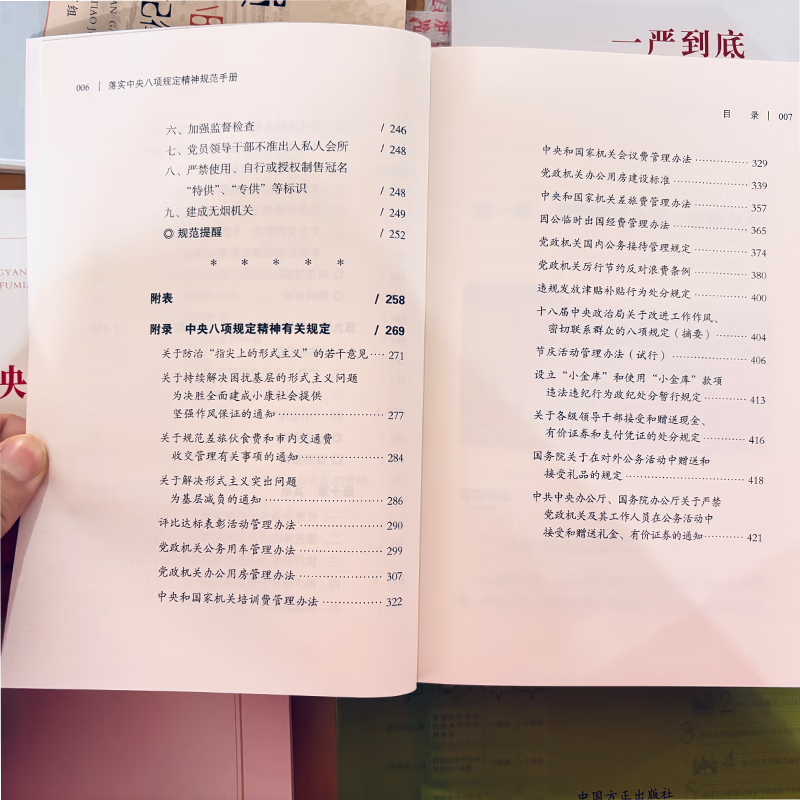 一严到底
006 | 落实中央八项规定精神规范手册
六、加强监督检查 / 246
七、党员领导干部不准出入私人会所 / 248
八、严禁使用、自行或授权制售冠名
“特供”、“专供”等标识 / 248
九、建成无烟机关 / 249
◎ 规范提醒 / 252
* * * * *
附表 / 258
附录 中央八项规定精神有关规定 / 269
关于防治“指尖上的形式主义”的若干意见 … 271
关于持续解决困扰基层的形式主义问题
为决胜全面建成小康社会提供
坚强作风保证的通知 …………… 277
关于规范差旅伙食费和市内交通费
收交管理有关事项的通知 …………… 284
关于解决形式主义突出问题
为基层减负的通知 …………… 286
评比达标表彰活动管理办法 …………… 290
党政机关公务用车管理办法 …………… 299
党政机关办公用房管理办法 …………… 307
中央和国家机关培训费管理办法 …………… 322
目 录 | 007
中央和国家机关会议费管理办法 …………… 329
党政机关办公用房建设标准 …………… 339
中央和国家机关差旅费管理办法 …………… 357
因公临时出国经费管理办法 …………… 365
党政机关国内公务接待管理规定 …………… 374
党政机关厉行节约反对浪费条例 …………… 380
违规发放津贴补贴行为处分规定 …………… 400
十八届中央政治局关于改进工作作风、
密切联系群众的八项规定（摘要） ……… 404
节庆活动管理办法（试行） …………… 406
设立“小金库”和使用“小金库”款项
违法违纪行为政纪处分暂行规定 ……… 413
关于各级领导干部接受和赠送现金、
有价证券和支付凭证的处分规定 ……… 416
国务院关于在对外公务活动中赠送和
接受礼品的规定 …………… 418
中共中央办公厅、国务院办公厅关于严禁
党政机关及其工作人员在公务活动中
接受和赠送礼金、有价证券的通知 ……… 421
央
中国方正出版社